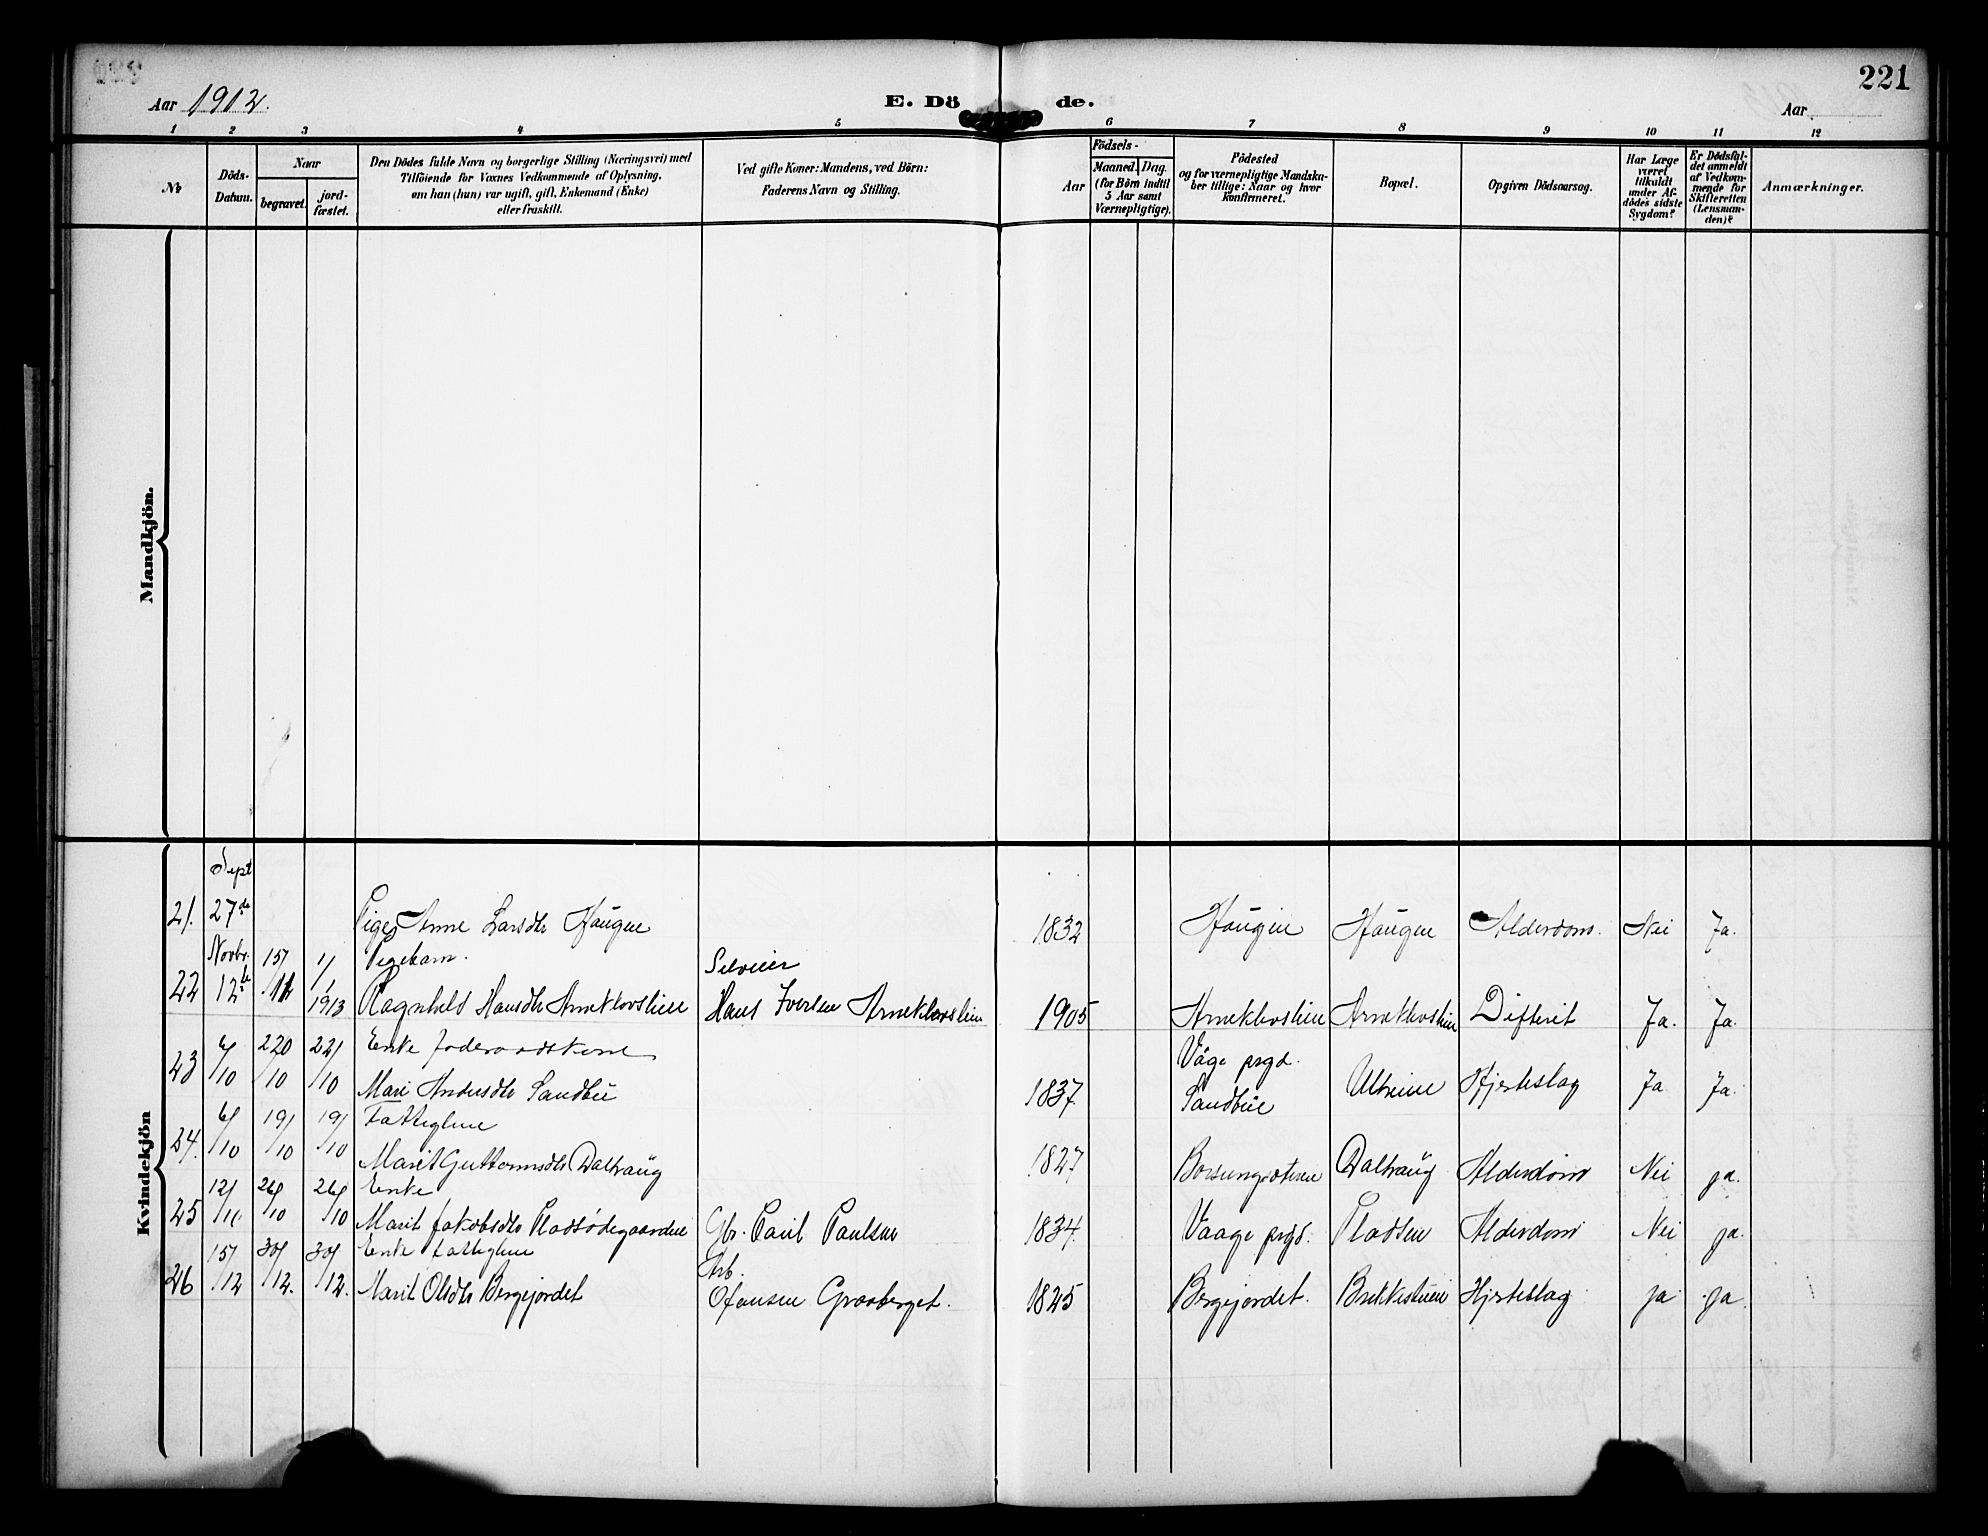 221
Aar 1912.
E. Dö de.
Aar
1 2 3 4 5 6 7 8 9 10 11 12
No
Döds-Datum.
Naar
begravet.
jordfæstet.
Den Dödes fulde Navn og borgerlige Stilling (Næringsvei) med
Tilföiende for Voxnes Vedkommende af Oplysning,
om han (hun) var ugift, gift, Enkemand (Enke)
eller fraskilt.
Ved gifte Koner: Mandens, ved Börn:
Faderens Navn og Stilling.
Aar
Födsels-
Maaned. Dag.
(for Börn indtil
5 Aar samt
Værnepligtige).
Födested
og for værnepligtige Mandska-
ber tillige: Naar og hvor
konfirmeret.
Bopæl.
Opgiven Dödsaarsag.
Har Læge
været
tilkaldt
under Af-
dödes sidste
Sygdom?
Er Dödsfal-
det anmeldt
af Vedkom-
mende for
Skifteretten
(Lensman-
den)?
Anmærkninger.
Mandkjön.
Kvindekjön
Sept
21. 27de Pige Anne Larsdtr Haugen 1832 Haugen Haugen Alderdom. Nei Ja.
Novbr. 15/ 1/ Pigebarn. Selveier
22 12te 12 1913 Ragnhild Hansdtr Arneklevslien Hans Iversen Arneklevslien 1905 Arneklevslien Arneklevslien Difterit Ja. Ja.
6/ 22/ Enke Föderaadskone Vaage prgd.
23 10 10 10 Mari Andersdtr Sandbu 1837 Sandbue Hjerteslag Ja Ja.
6/ 19/ 19/ Fattiglem
24. 10 10 10 Marit Guttormsdtr Dalhaug 1827 Dalhaug Alderdom Nei ja.
12/ 26/ 26/ Enke
25 10 10 Marit Jakobsdtr Pladsödegaarden Gbr. Paul Paulsen 1834 Vaage prgd. Pladsen Alderdom Nei ja.
15/ 30/ 30/ Enke Fattiglem Arb.
26 12 12. 12. Marit Olsdtr Bergejordet O Jansen Graaberget. 1825 Bergejordet. Hjerteslag ja ja.